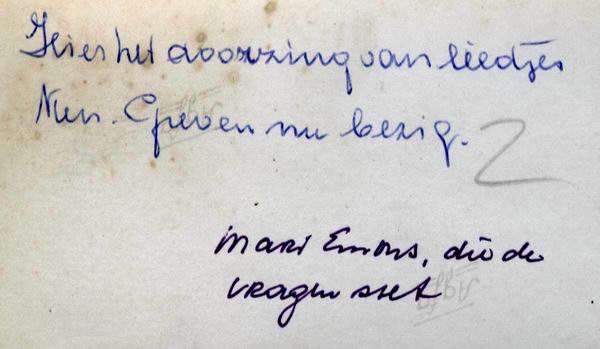 Hier het doorzing van liedjes
Men. Geven nu bezig.
2
Mari Emons, die de
vragen stet